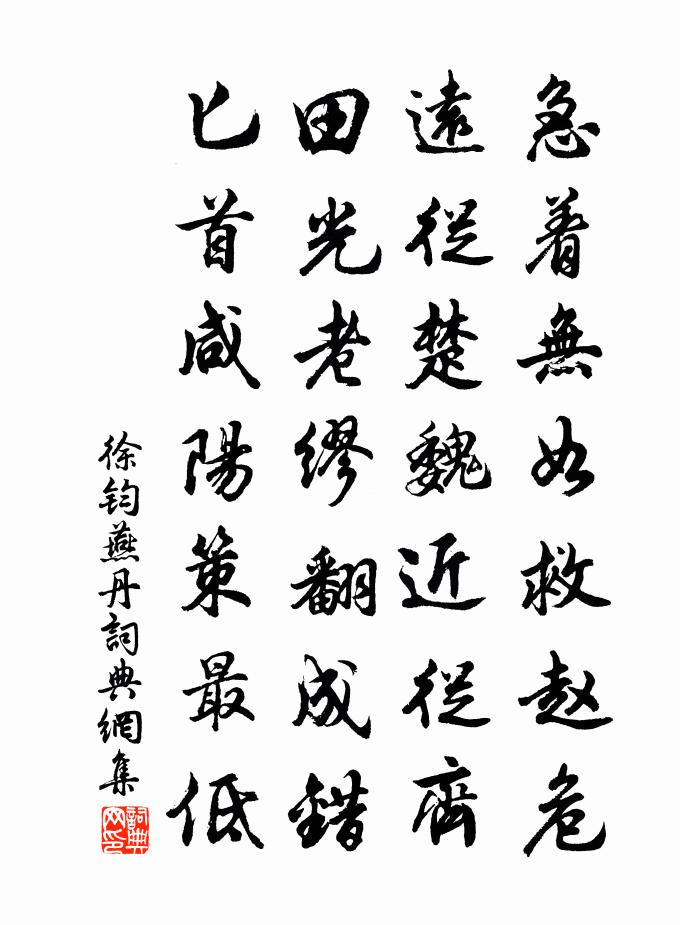 急着無如救赵危
遠從楚魏近從齊
田光老繆翻成錯
匕首咸陽策最低
徐鈞燕丹詞典網集
詞典網印